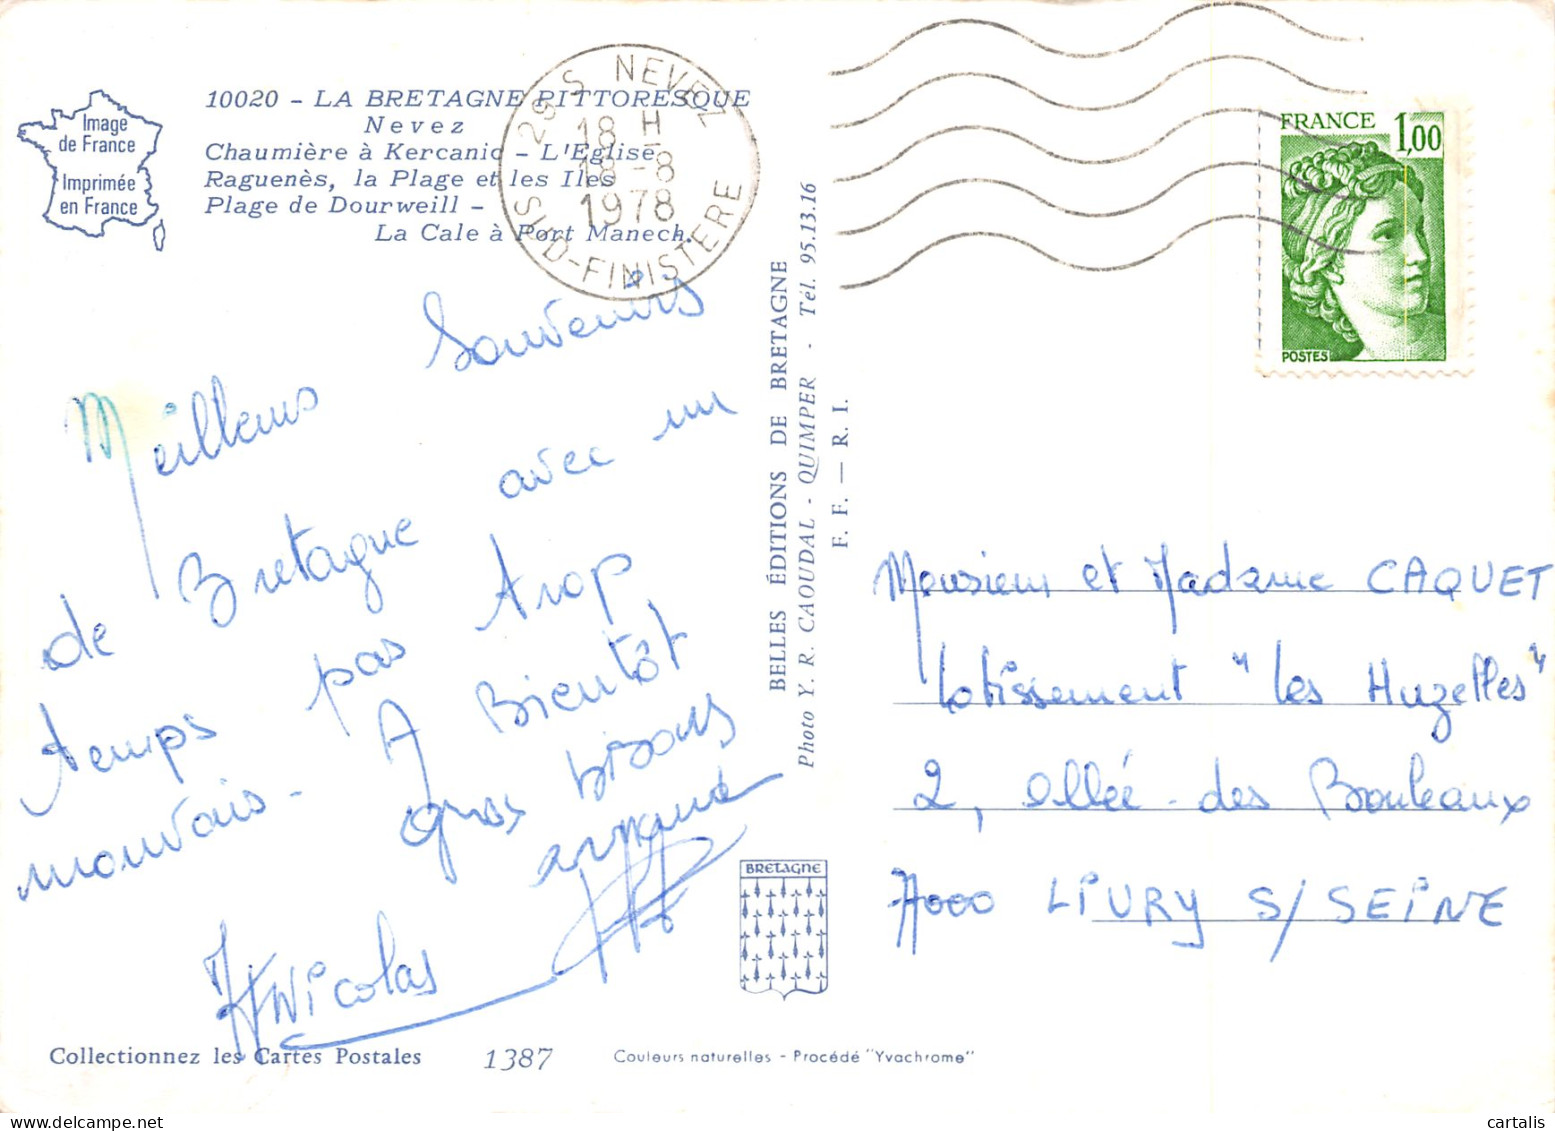 Image
de France
Imprimée
en France
10020 - LA BRETAGNE PITTORESQUE
Nevez
Chaumière à Kercanic - L'Eglise
Raguenès, la Plage et les Iles
Plage de Dourweill -
La Cale à Port Manech.
29 S NEVEZ
18 H
18-8
1978
SUD-FINISTERE
FRANCE 1,00
POSTES
Meilleurs Souvenirs
de Bretagne avec un
temps pas trop
mauvais - A Bientôt
gros bisons
Nicolas
BELLES ÉDITIONS DE BRETAGNE
Photo Y. R. CAOUDAL - QUIMPER - Tél. 95.13.16
F. F. — R. I.
Monsieur et Madame CAQUET
lotissement "les Huzelles"
2, allée des Bouleaux
7000 LIVRY S/ SEINE
BRETAGNE
Collectionnez les Cartes Postales
1387
Couleurs naturelles - Procédé "Yvachrome"
cartalis